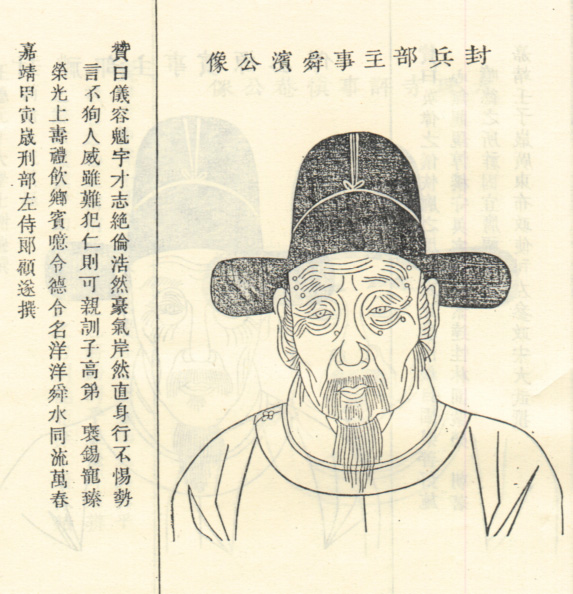 封兵部主事舜濱公像
贊曰儀容魁宇才志絶倫浩然豪氣岸然直身行不惕勢
言不狥人威雖難犯仁則可親訓子高第 褒錫寵臻
榮光上壽禮飲鄉賓噫令德令名洋洋舜水同流萬春
嘉靖甲寅嵗刑部左侍郎顧遂撰